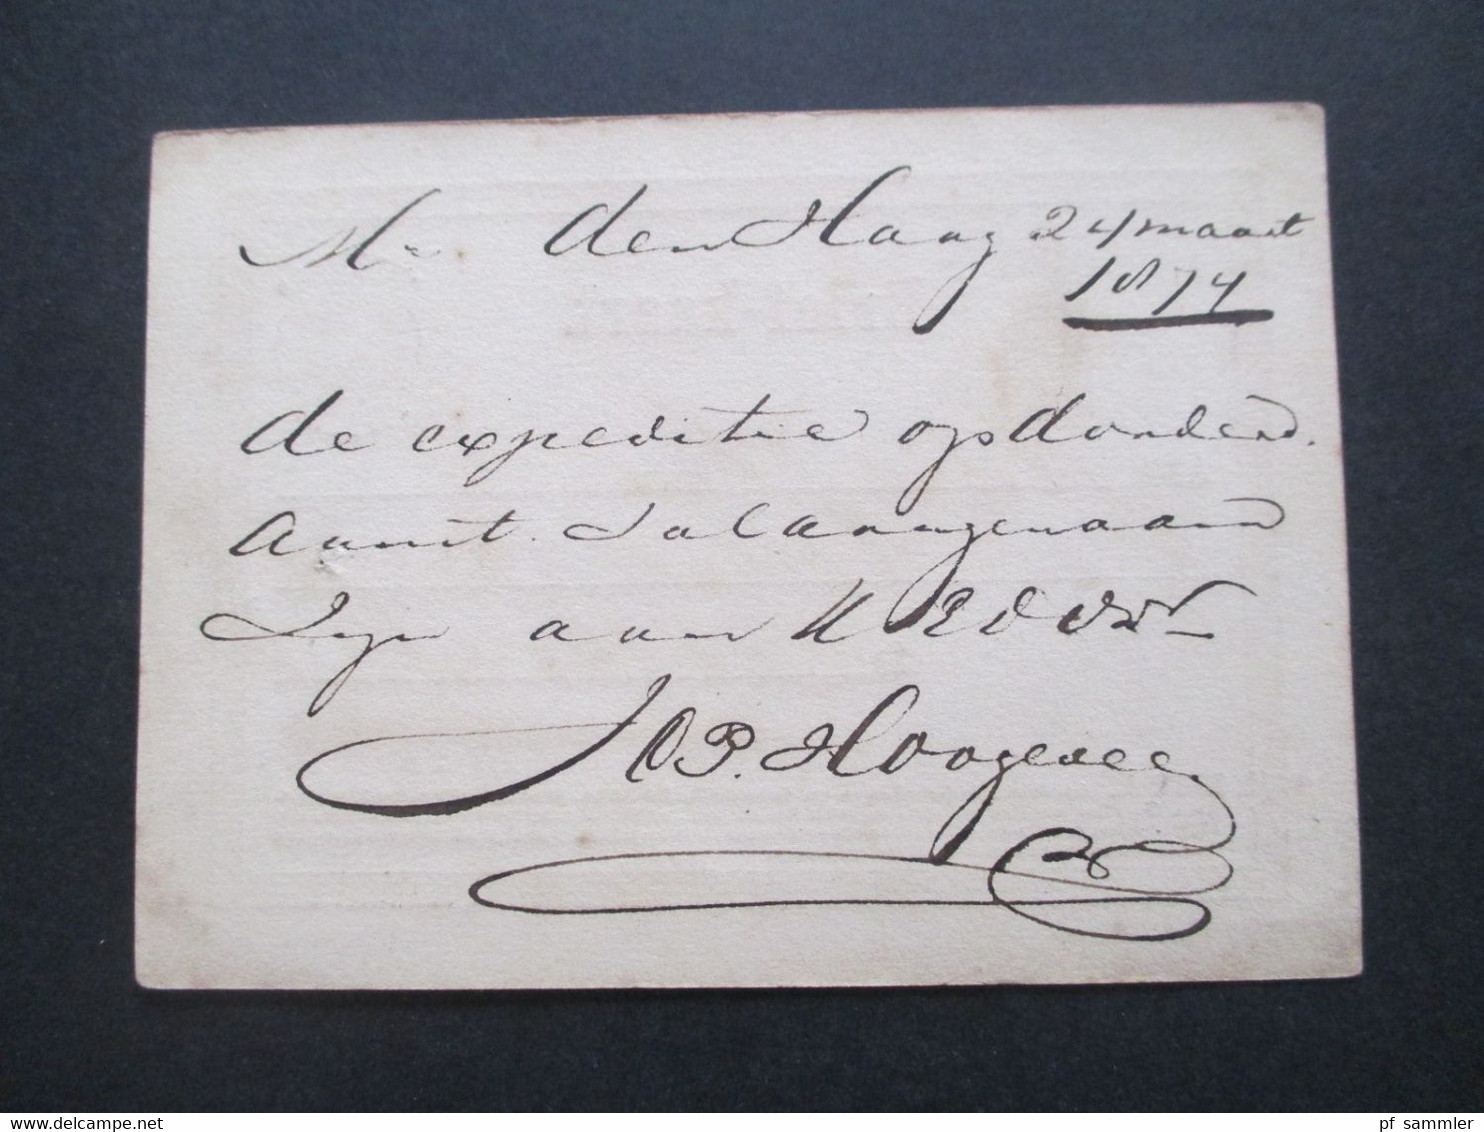 Mr den Haag 24 maart
1874
de expeditie op donderd.
aanst. zal aangenaam
zijn aan UEdDr
J C P. Hoogevee
pf sammler